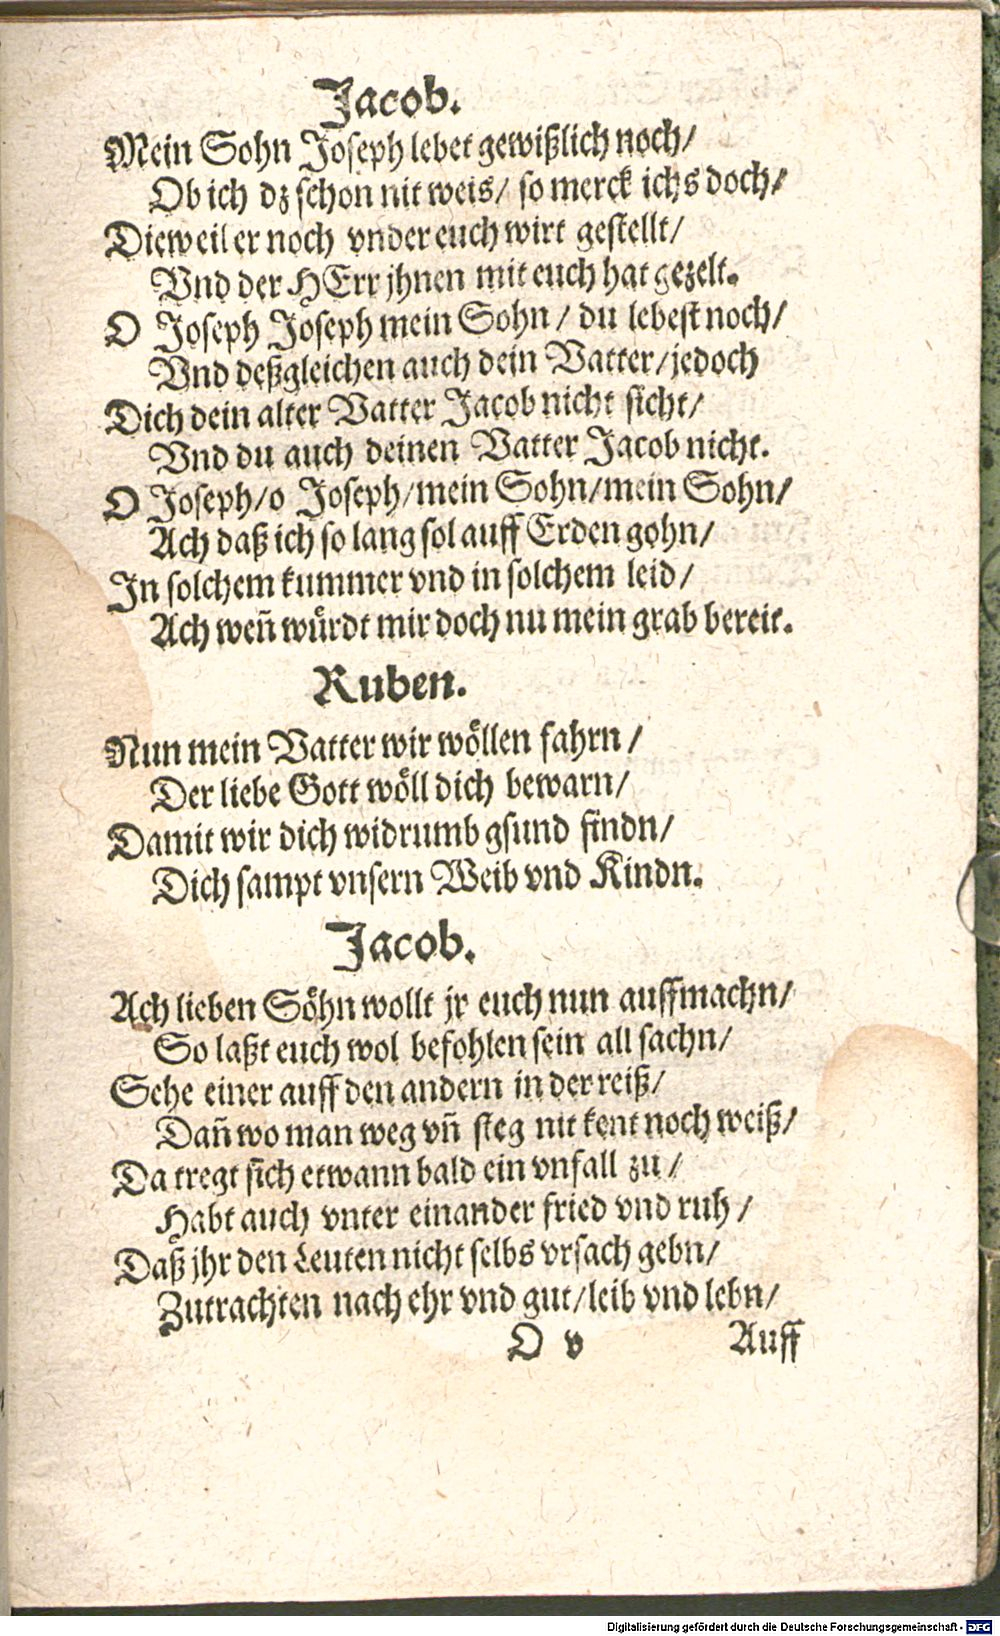 Jacob.
Mein Sohn Joseph lebet gewißlich noch/
Ob ich dz schon nit weis/ so merck ichs doch/
Dieweil er noch vnder euch wirt gestellt/
Vnd der HErr jhnen mit euch hat gezelt.
O Joseph Joseph mein Sohn/ du lebest noch/
Vnd deßgleichen auch dein Vatter/jedoch
Dich dein alter Vatter Jacob nicht sicht/
Vnd du auch deinen Vatter Jacob nicht.
O Joseph/o Joseph/mein Sohn/mein Sohn/
Ach daß ich so lang sol auff Erden gohn/
In solchem kummer vnd in solchem leid/
Ach weñ wuͤrdt mir doch nu mein grab bereit.
Ruben.
Nun mein Vatter wir woͤllen fahrn/
Der liebe Gott woͤll dich bewarn/
Damit wir dich widrumb gsund findn/
Dich sampt vnsern Weib vnd Kindn.
Jacob.
Ach lieben Soͤhn wollt jr euch nun auffmachn/
So laßt euch wol befohlen sein all sachn/
Sehe einer auff den andern in der reiß/
Dañ wo man weg vñ steg nit kent noch weiß/
Da tregt sich etwann bald ein vnfall zu/
Habt auch vnter einander fried vnd ruh/
Daß jhr den Leuten nicht selbs vrsach gebn/
Zutrachten nach ehr vnd gut/leib vnd lebn/
O v Auff
Digitalisierung gefördert durch die Deutsche Forschungsgemeinschaft - DFG